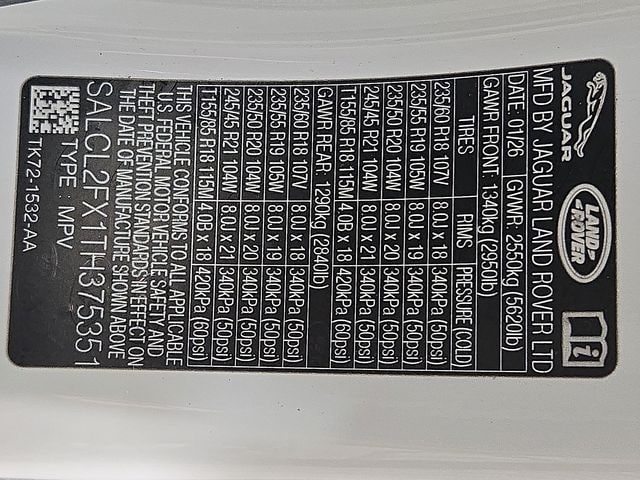 JAGUAR
LAND-
ROVER
MFD BY JAGUAR LAND ROVER LTD
DATE: 01/26 GVWR: 2550kg (5620lb)
GAWR FRONT: 1340kg (2950lb)
TIRES RIMS PRESSURE (COLD)
235/60 R18 107V 8.0J x 18 340kPa (50psi)
235/55 R19 105W 8.0J x 19 340kPa (50psi)
235/50 R20 104W 8.0J x 20 340kPa (50psi)
245/45 R21 104W 8.0J x 21 340kPa (50psi)
T155/85 R18 115M 4.0B x 18 420kPa (60psi)
GAWR REAR: 1290kg (2840lb)
235/60 R18 107V 8.0J x 18 340kPa (50psi)
235/55 R19 105W 8.0J x 19 340kPa (50psi)
235/50 R20 104W 8.0J x 20 340kPa (50psi)
245/45 R21 104W 8.0J x 21 340kPa (50psi)
T155/85 R18 115M 4.0B x 18 420kPa (60psi)
THIS VEHICLE CONFORMS TO ALL APPLICABLE
U.S. FEDERAL MOTOR VEHICLE SAFETY AND
THEFT PREVENTION STANDARDS IN EFFECT ON
THE DATE OF MANUFACTURE SHOWN ABOVE
SALCL2FX1TH375351
TYPE : MPV
TK72-1532-AA